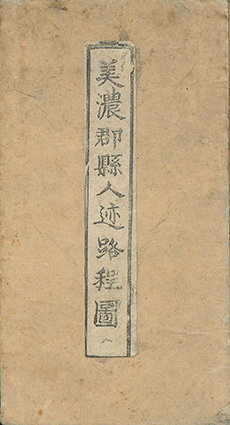 美濃郡縣人迹路程圖